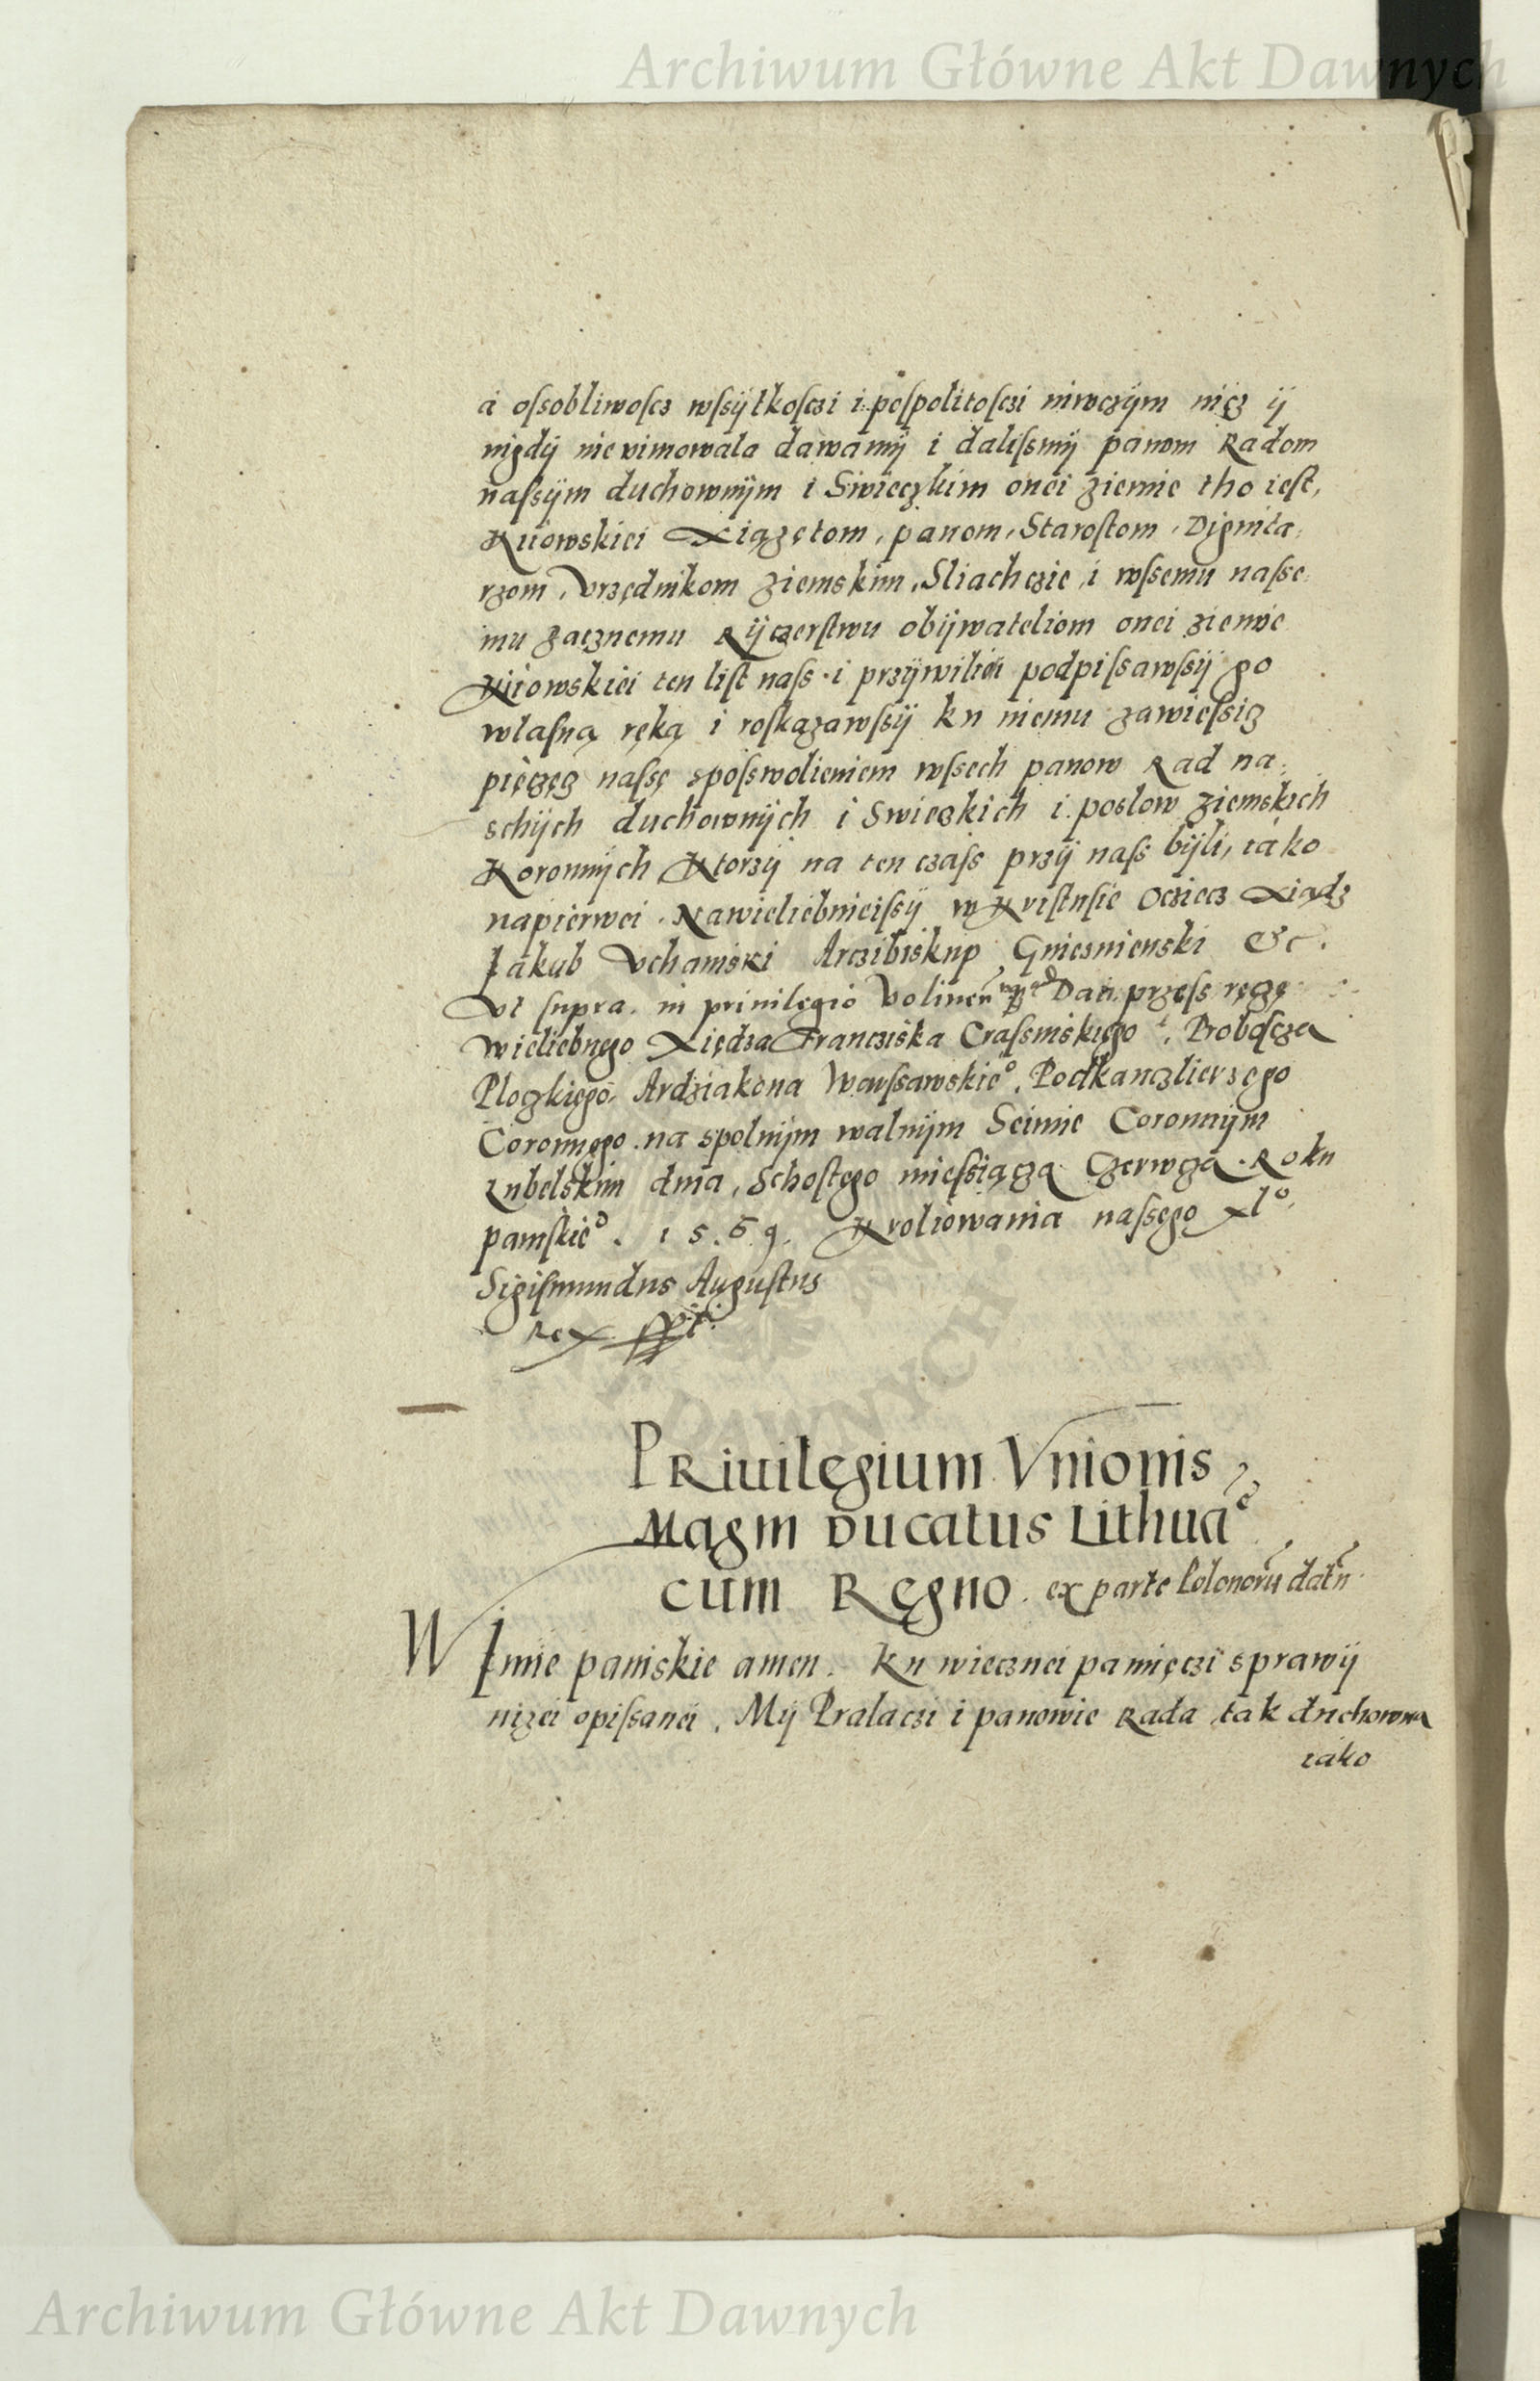 Archiwum Główne Akt Dawnych
á oſsobliwoſcz wſsÿtkoſczi i poſpolitoſczi niwczÿm nięz ÿ
nigdÿ nie vimowala dawamÿ i daliſsmÿ panom Radom
naſsÿm duchownÿm i Swieczkim onei ziemie tho ieſt,
Kiiowskiei Xiążętom, panom, Staroſtom, Dignita-
rzom, Vrzędnikom ziemskim, Sliachczie i wſsemu naſse-
mu zacznemu Rÿczerſtwu obÿwateliom onei ziemie
Kÿiowskiei ten liſt naſs i przÿwiliei podpiſsawſsÿ go
wlaſną ręką i roſkązawſsÿ ku niemu zawieſsiz
pięczęz naſsę spoſswolieniem wſsech panow Rad na-
schÿch duchownÿch i Swiezkich i poslow ziemskich
Koronnÿch Ktorzÿ na ten czaſs przÿ naſs bÿli, iáko
napierwei Nawieliebnieiſsÿ w Kriſtuſie Ocziecz Xiądz
Jakub Vchański Arczibiskup Gniesnienski &c.
Vt ſupra in priuilegio Volinen usq ad Dan przeſs ręzę
Wieliebnego Xiędza Franciſka Craſsinskiego, Proboſcza
Ploczkiego Ardziakona Warſsawskieº, Podkanczlierzego
Coronnego na spolnÿm walnÿm Seimie Coronnÿm
Lubelskim dnia, Schoſtego mieſsiącza Czerwcza Roku
panſkieº. 1569. Kroliowania naſsego xlº.
Sigiſmundus Auguſtus
Rex sspt
PRiuilegium Vnionis
Magni Ducatus Lithuaᵉ
cum Regno ex parte Polonorū datū
W Imie panskie amen. Ku wiecznei pamięczi sprawÿ
niżei opiſsanei. Mÿ Pralaczi i panowie Rada tak duchowna
iáko
Archiwum Główne Akt Dawnych